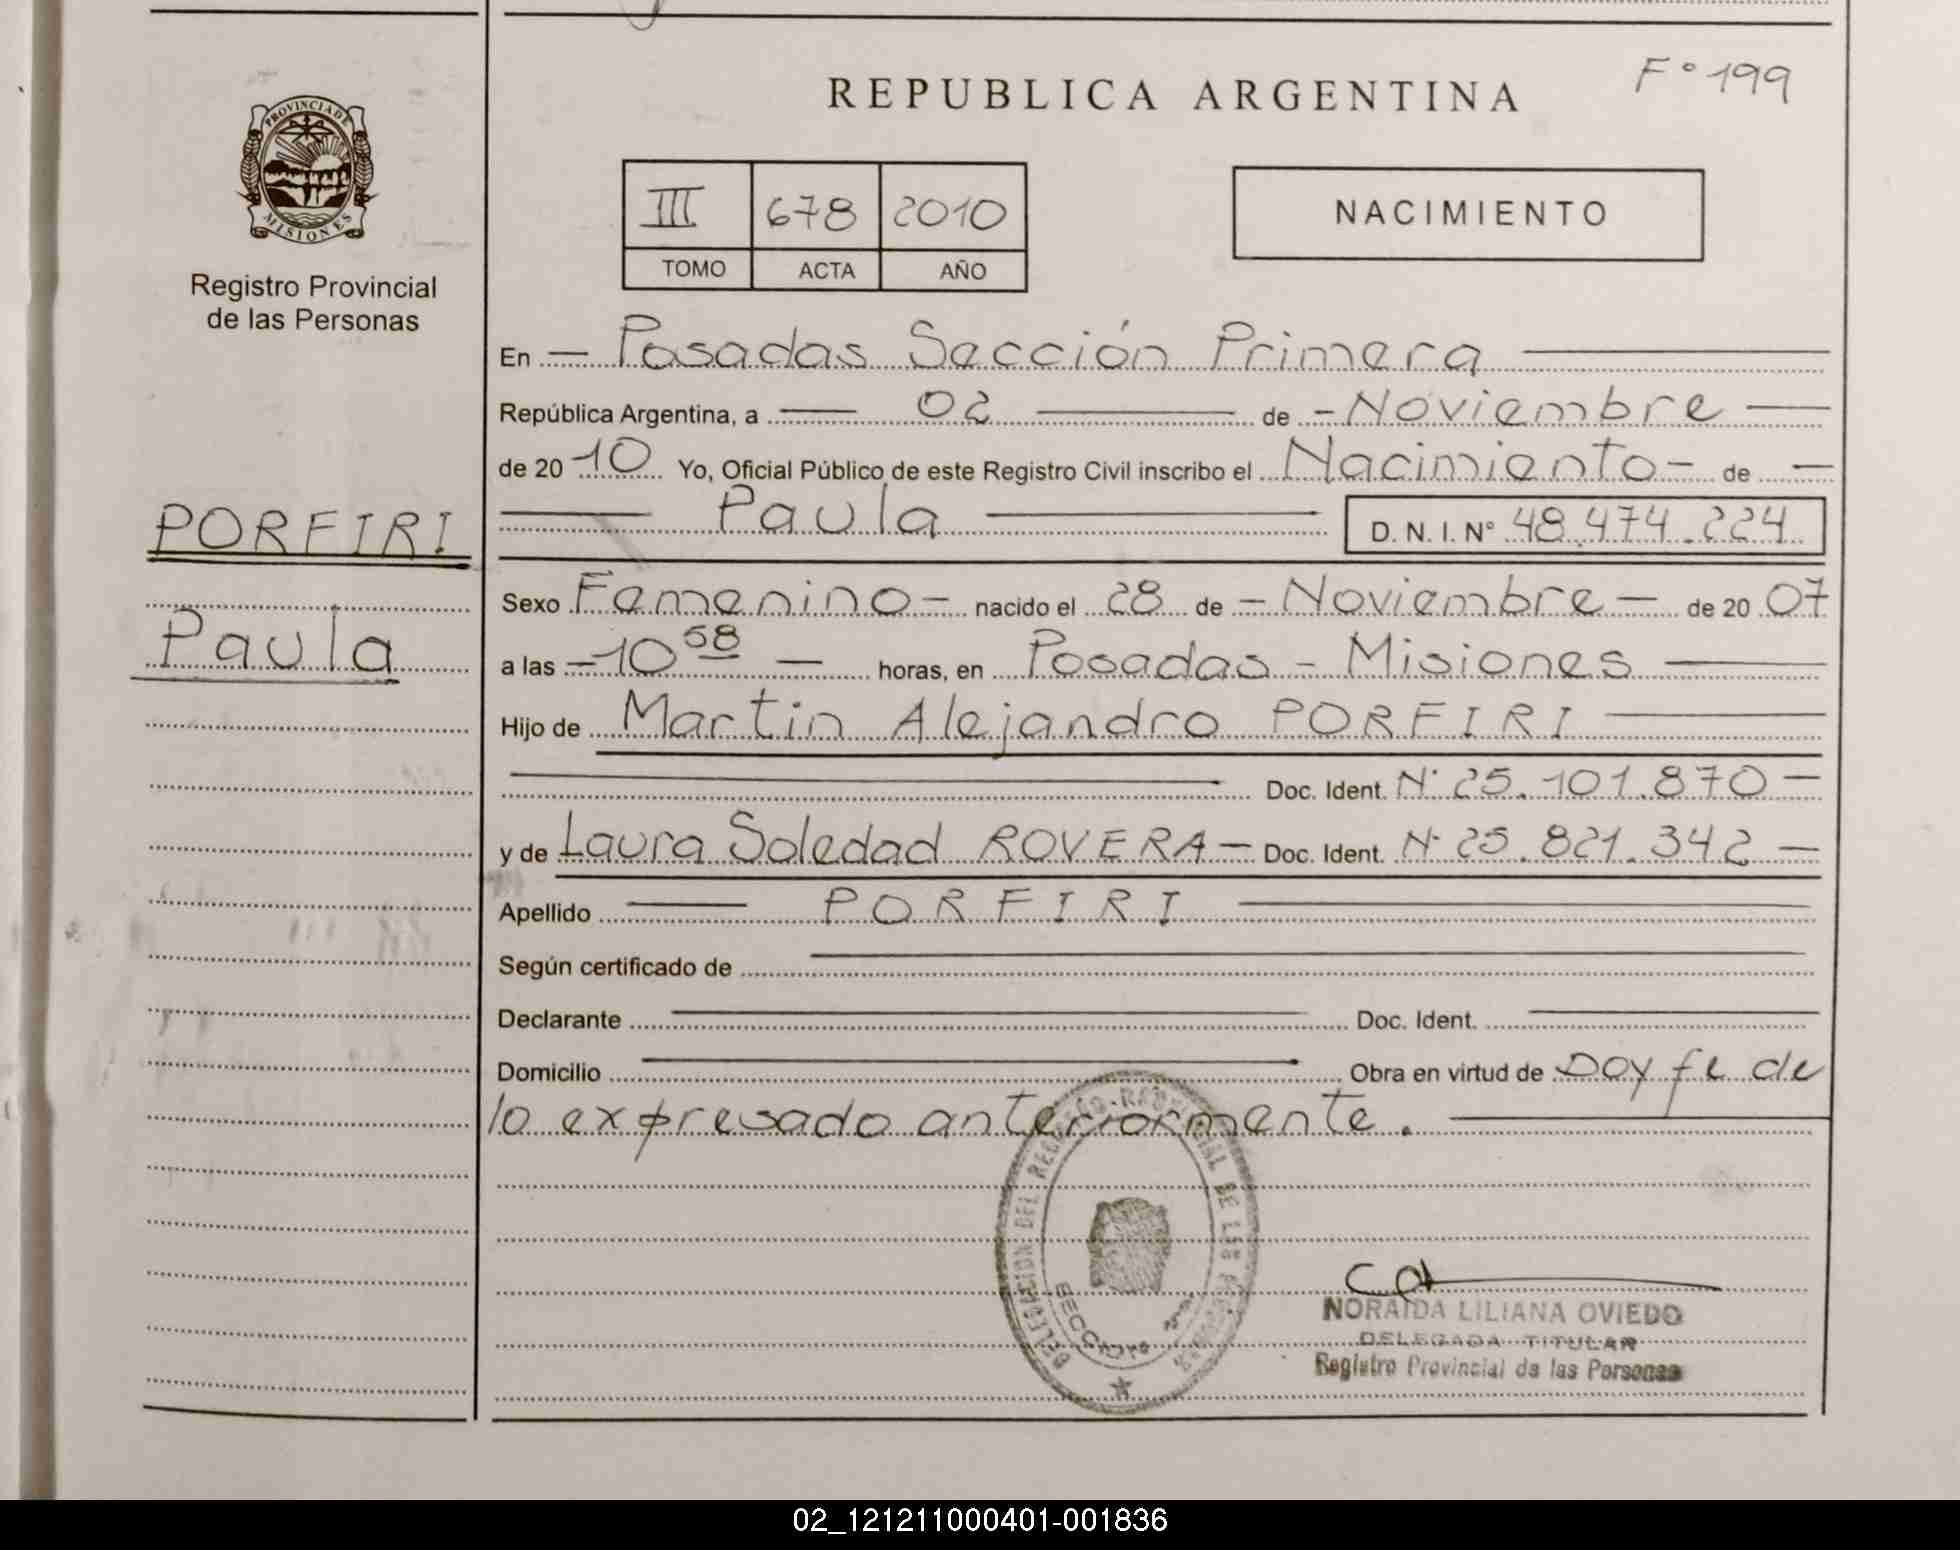 REPUBLICA ARGENTINA
Fº 199
PROVINCIA DE MISIONES
Registro Provincial
de las Personas
III 678 2010
TOMO ACTA AÑO
NACIMIENTO
En Posadas Sección Primera
República Argentina, a 02 de Noviembre
de 2010 Yo, Oficial Público de este Registro Civil inscribo el Nacimiento de
Paula D. N. I. Nº 48.474.224
PORFIRI
Paula
Sexo Femenino nacido el 28 de Noviembre de 20 07
a las 10 58 horas, en Posadas - Misiones
Hijo de Martin Alejandro PORFIRI
Doc. Ident. Nº 25.101.870
y de Laura Soledad ROVERA Doc. Ident. Nº 25.821.342
Apellido PORFIRI
Según certificado de
Declarante Doc. Ident.
Domicilio Obra en virtud de Doy fe de
lo expresado anteriormente.
DELEGACION DEL REGISTRO PROVINCIAL DE LAS PERSONAS
NORAIDA LILIANA OVIEDO
DELEGADA TITULAR
Registro Provincial de las Personas
02_121211000401-001836